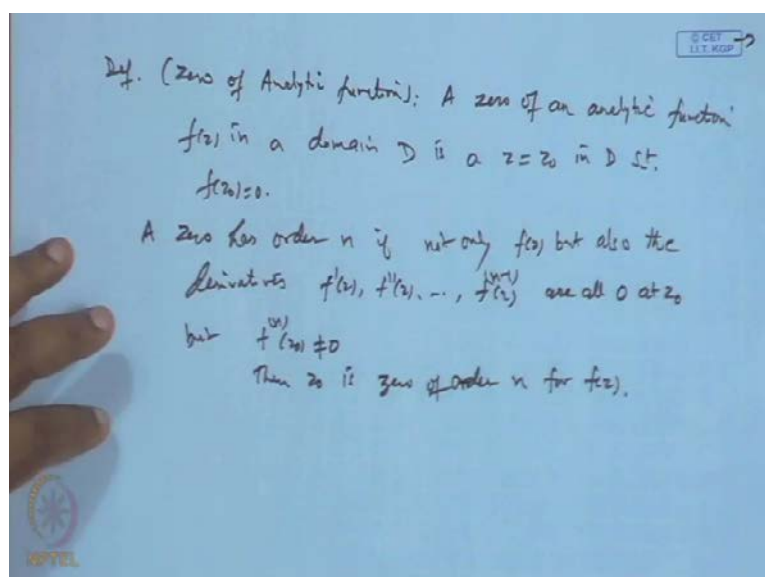 © CET
I.I.T. KGP
Def. (Zero of Analytic function): A zero of an analytic function
f(z) in a domain D is a z=z₀ in D s.t.
f(z₀)=0.
A zero has order n if not only f(z) but also the
derivatives f'(z), f''(z), ..., f^(n-1)(z) are all 0 at z₀
but f^(n)(z₀) ≠0
Then z₀ is zero of order n for f(z).
NPTEL